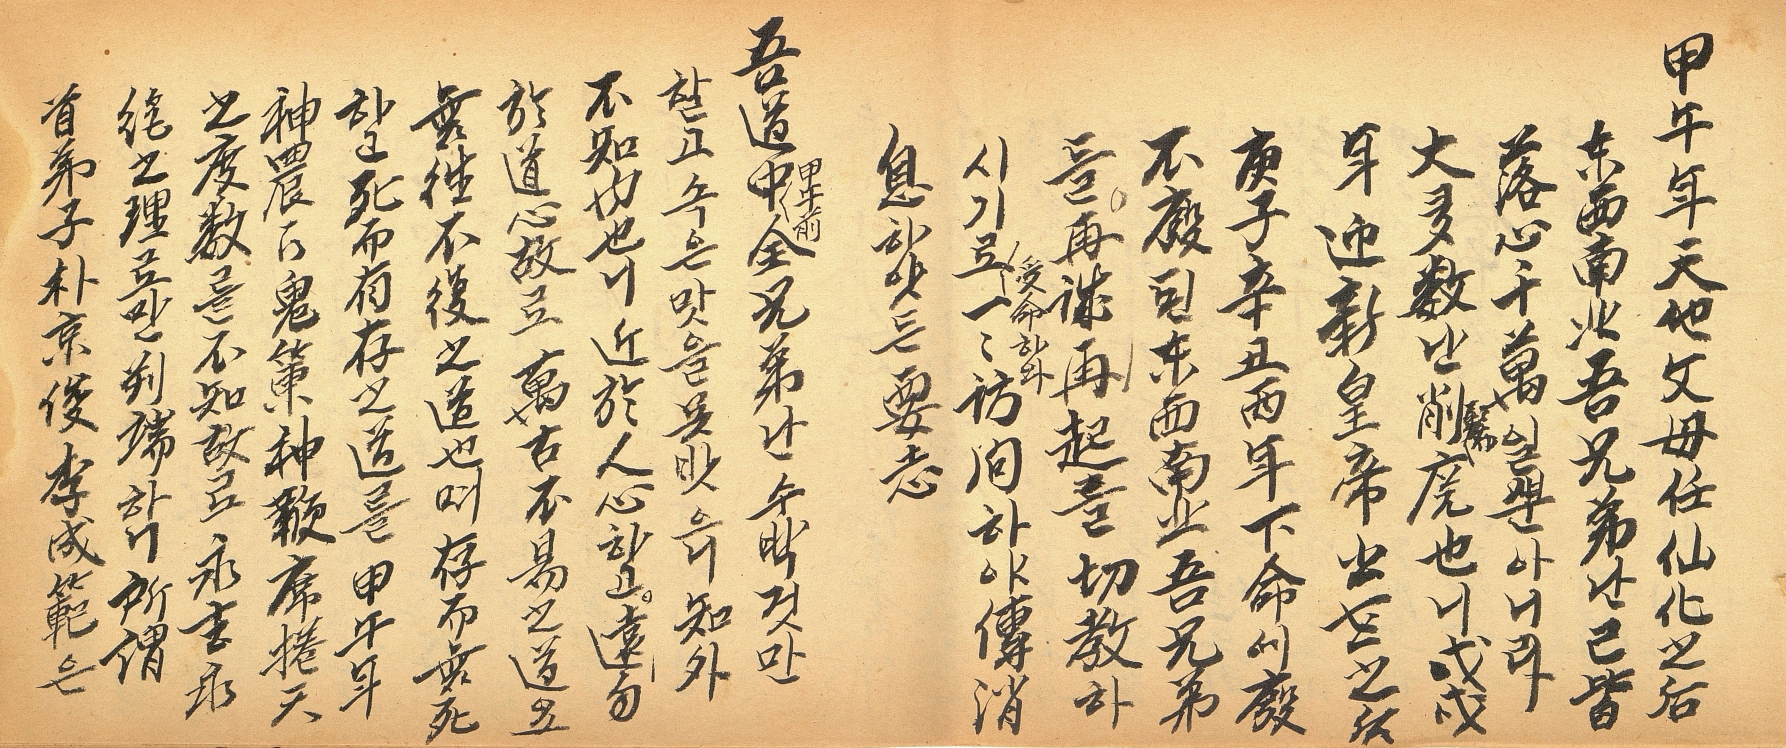 甲午年天地父母任仙化之后
东西南北吾兄弟난已皆
落心千萬일뿐아니라
大多数난削髮庑也니戊戌
年迎新皇帝出世之后
庚子辛丑西年下命이廢
不廢된东西南北吾兄弟
들再誠再起를切教하
시기로(受命하와)一ミ訪问하야傳消
息하얏든要忐
吾道中(甲午前)全兄弟난수박것만
할고수은맛을못밧으니知外
不知内也니近於人心하고。遠
於道心故로萬古不易之道五
無徃不復之道也叫存而無死
하고死而有存之道를甲午年
神農氏鬼策神鞭席捲天
之度数를不知故로永言永
絶之理로만判端하니所謂
首弟子朴京俊李成範은